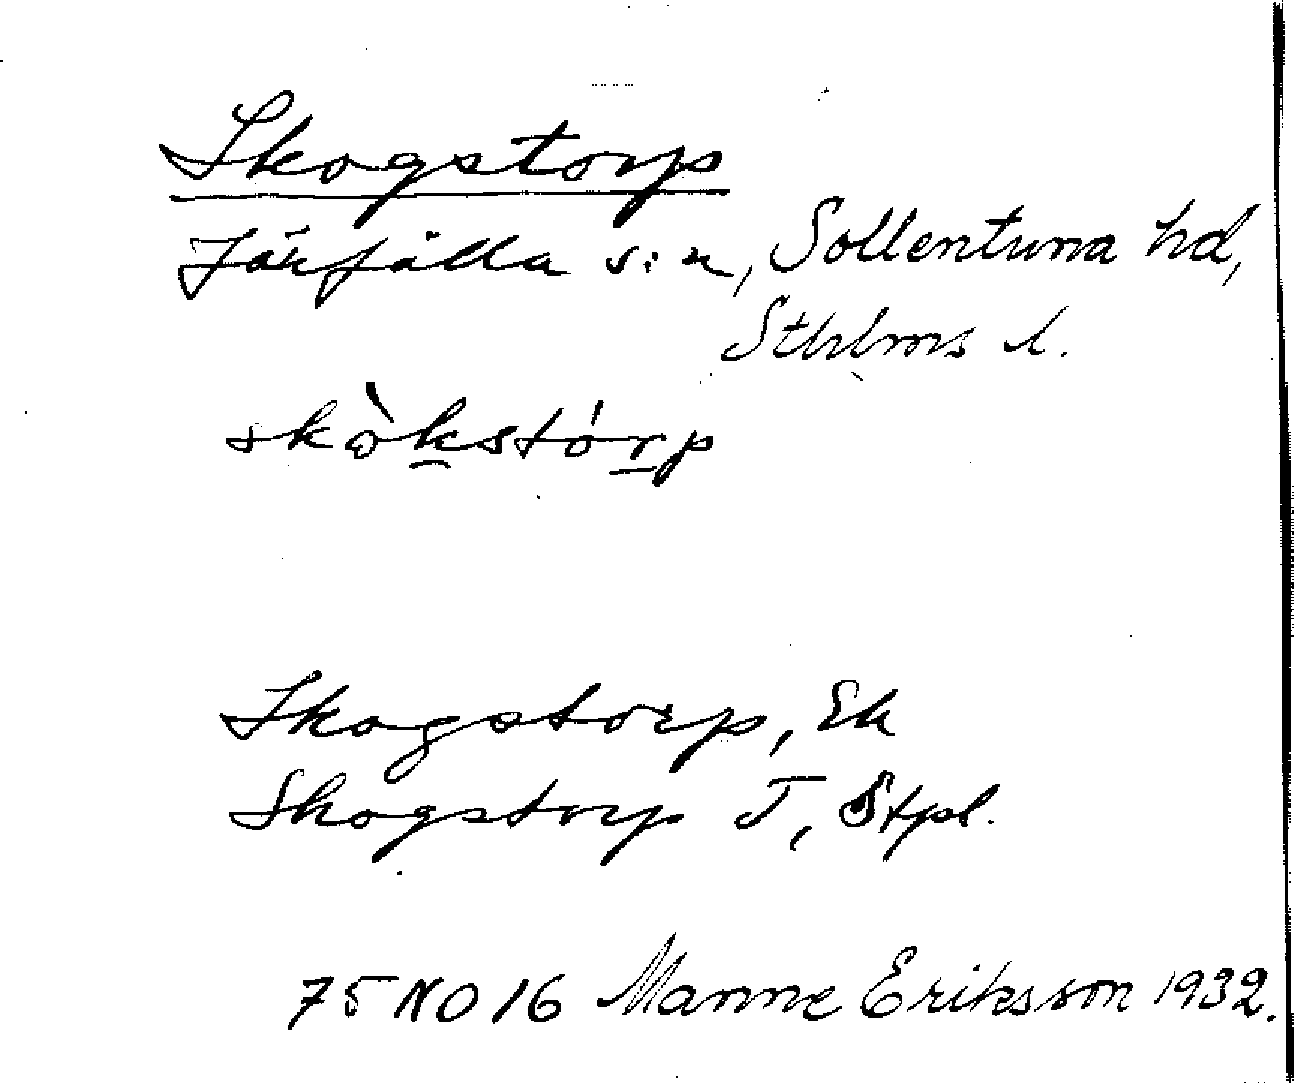 Skogstorp
Järfälla s:n, Sollentuna hd,
Sthlms l.
skò̱kstórp
Skogstorp, Ek
Skogstorp T, Stpl.
75 NO 16 Manne Eriksson 1932.